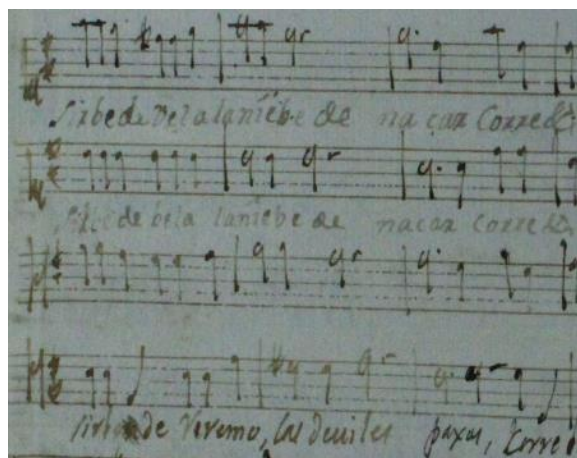 sirbe de bela la niebe de nacar Corred
sirbe de bela la niebe de nacar corred
sirban de Veremo, las deviles paxas, Corred